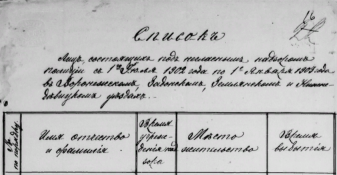 16
Списокъ
Лицъ, состоящихъ подъ негласнымъ надзоромъ
полиціи съ 1го Іюля 1902 года по 1е Января 1903 года
въ Воронежскомъ, Задонскомъ, Землянскомъ и Нижне-
дѣвицкомъ уѣздахъ.
№ по порядку
Имя отчество и фамилія
Время учрежденія надзора
Мѣсто жительства
Время выбытія